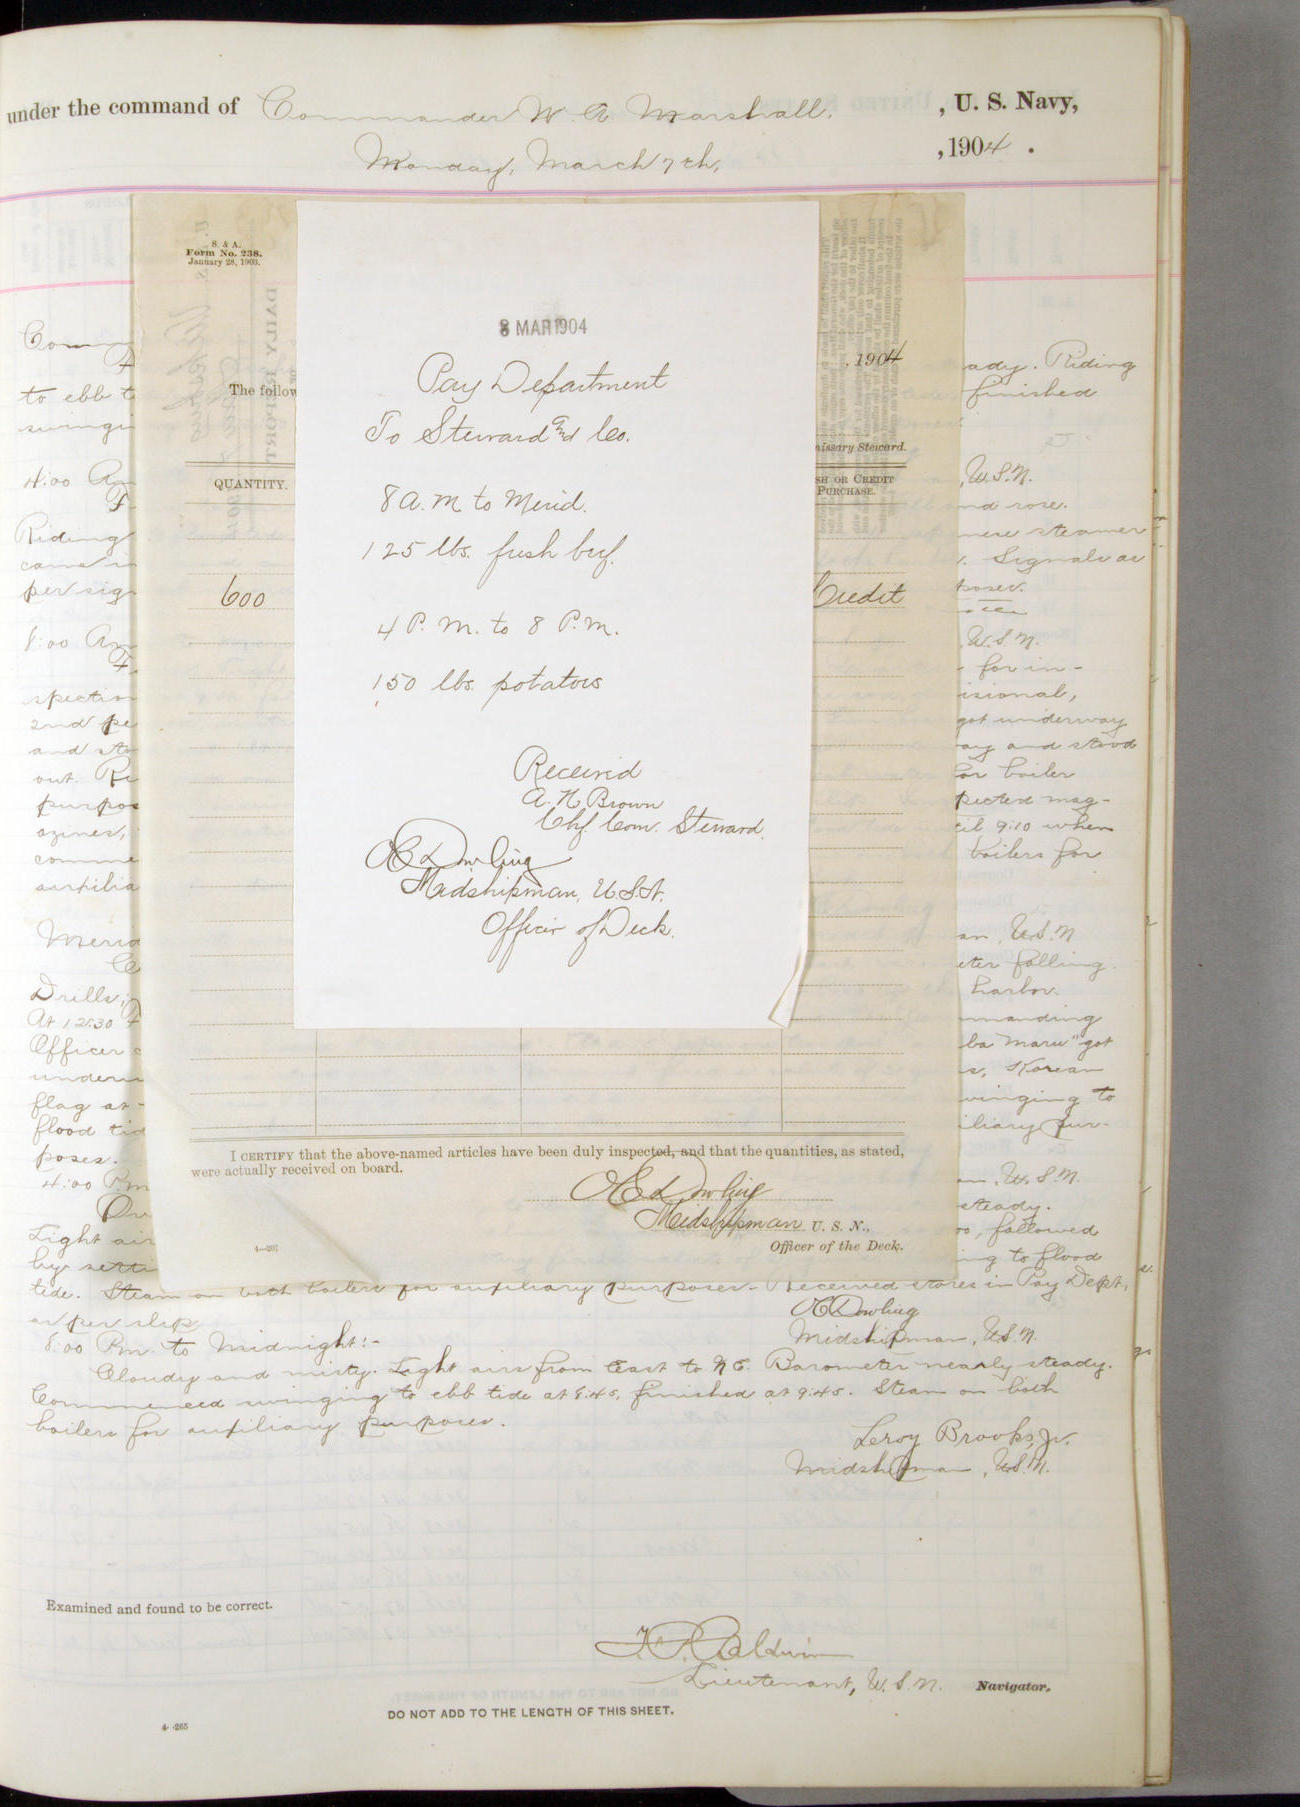 under the command of Commander W. A. Marshall. , U. S. Navy,
Monday, March 7th, , 1904 .
S. & A.
Form No. 238.
January 28, 1903.
DAILY REPORT
8 MAR 1904
Pay Department
To Steward and Co.
8 A. M. to Merid.
125 lbs. fresh beef.
4 P. M. to 8 P. M.
150 lbs. potatoes
Received
A. H. Brown
Chf. Com. Steward.
Dowling
Midshipman, U.S.N.
Officer of Deck.
, 1904
The follow
issary Steward.
QUANTITY.
SH OR CREDIT
PURCHASE.
600
Credit
I CERTIFY that the above-named articles have been duly inspected, and that the quantities, as stated,
were actually received on board.
Dowling
Midshipman U. S. N.,
Officer of the Deck.
4—201
Com
to ebb t
swingi
4:00 Am
Riding
came in
per sig
8:00 Am
spection
2nd pe
and sto
out.
purpos
azines,
comme
auxilia
Merid
Drills;
At 12:30
Officer
underw
flag at
flood tid
poses.
4:00 P.m
Light air
by setti
ady. Riding
finished
, U.S.N.
nd rose.
nese steamer
. Signals as
poses.
, U.S.N.
for in-
isional,
got underway
ay and stood
for boiler
pected mag-
til 9:10 when
boilers for
an, U.S.N
eter falling.
harbor.
mmanding
ba Maru" got
s, Korean
winging to
iliary pur-
an, U.S.N.
steady.
00, followed
ing to flood
tide. Steam on both boilers for auxiliary purposes. Received stores in Pay Dept,
as per slip
Dowling
Midshipman, U.S.N.
8:00 P.m. to Midnight:-
Cloudy and misty. Light airs from East to N.E. Barometer nearly steady.
Commenced swinging to ebb tide at 8:45, finished at 9:45. Steam on both
boilers for auxiliary purposes.
Leroy Brooks, Jr.
Midshipman, U.S.N.
Examined and found to be correct.
Baldwin
Lieutenant, U.S.N. Navigator.
DO NOT ADD TO THE LENGTH OF THIS SHEET.
4-265